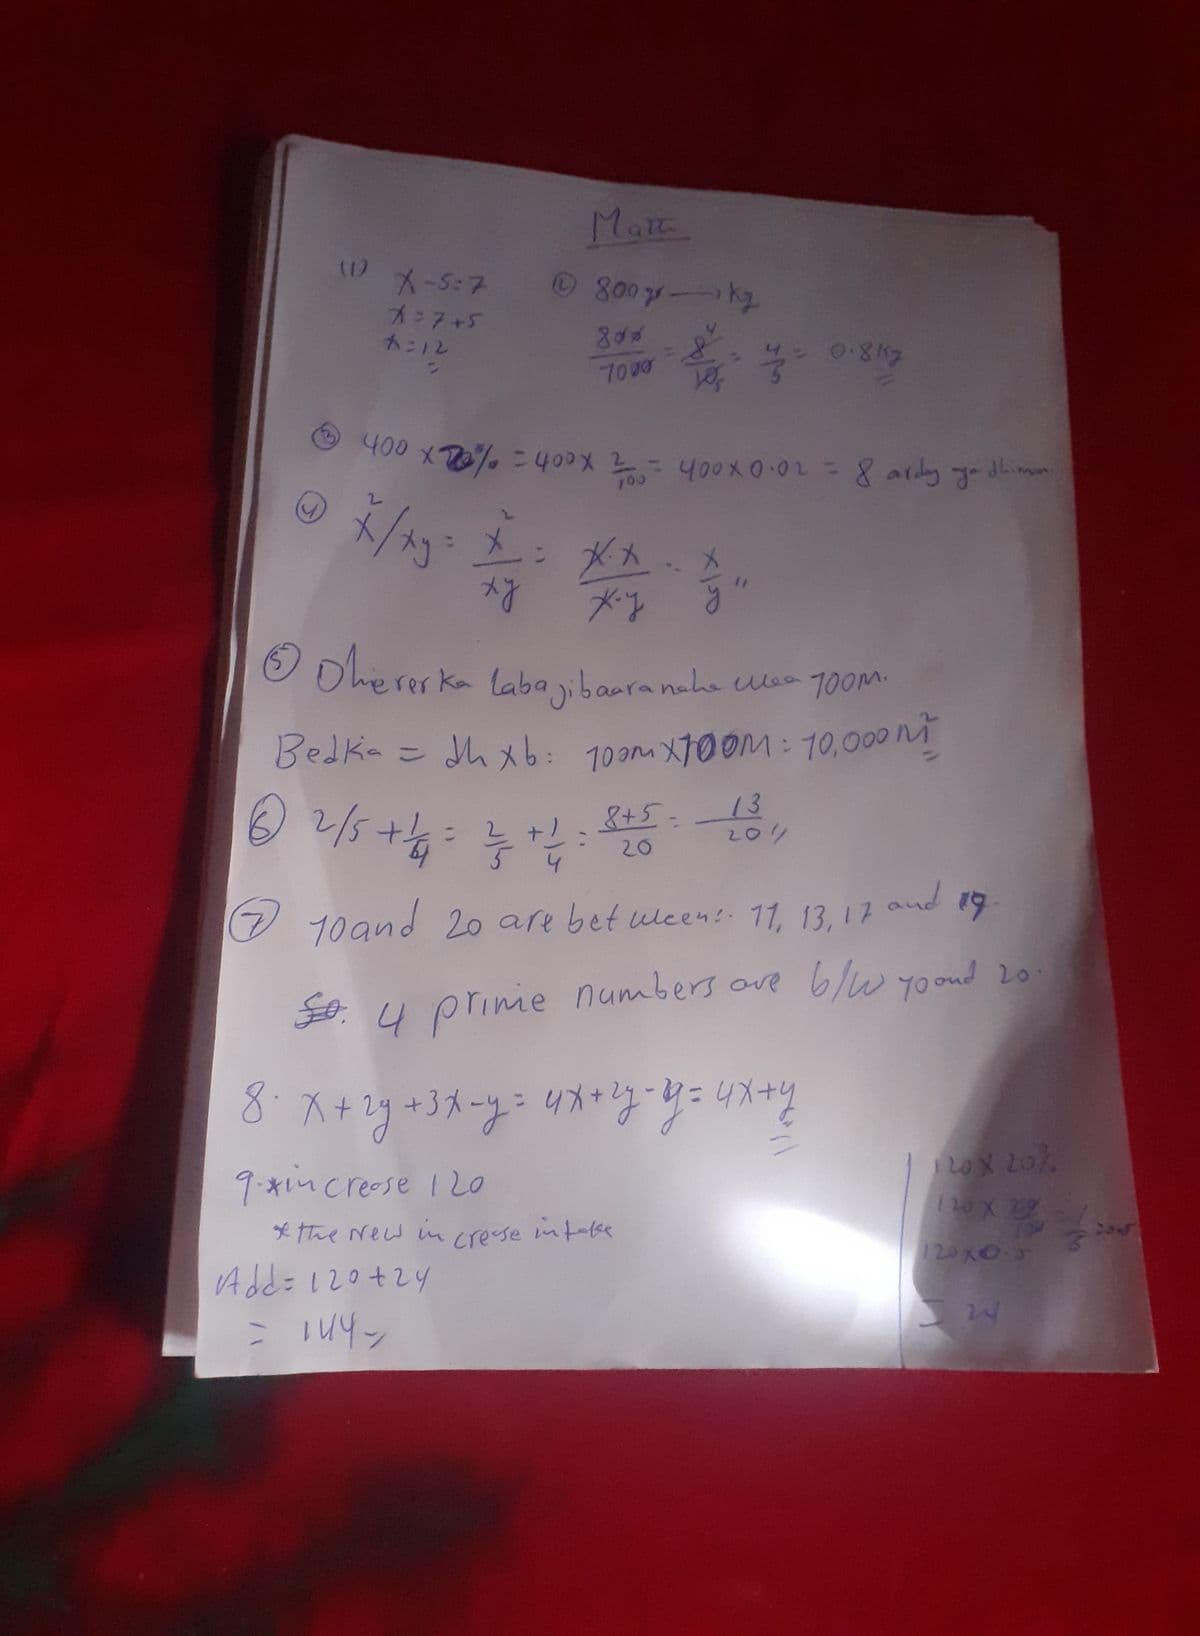 Math
(1) x-5=7
x=7+5
x=12
② 800gr → kg
800/1000 = 8/10 = 4/5 = 0.8kg
③ 400 x 2% = 400 x 2/100 = 400x0.02 = 8 arday
④ x²/xy = x²/xy = x.x/x.y = x/y
⑤ Dhererka labajibaaranaha waa 100m.
Bedkia = dh x b: 100m x 100m = 10,000m²
⑥ 2/5 + 1/4 = 2/5 + 1/4 = 8+5/20 = 13/20
⑦ 10 and 20 are between:- 11, 13, 17 and 19.
4 prime numbers are b/w 10 and 20.
8. x+2y+3x-y = 4x+2y-y = 4x+y
9. *increase 120
* the new increase intake
Add = 120+24
= 144
120 x 20%
120 x 20/100 = 1/5
120x0.5
= 24